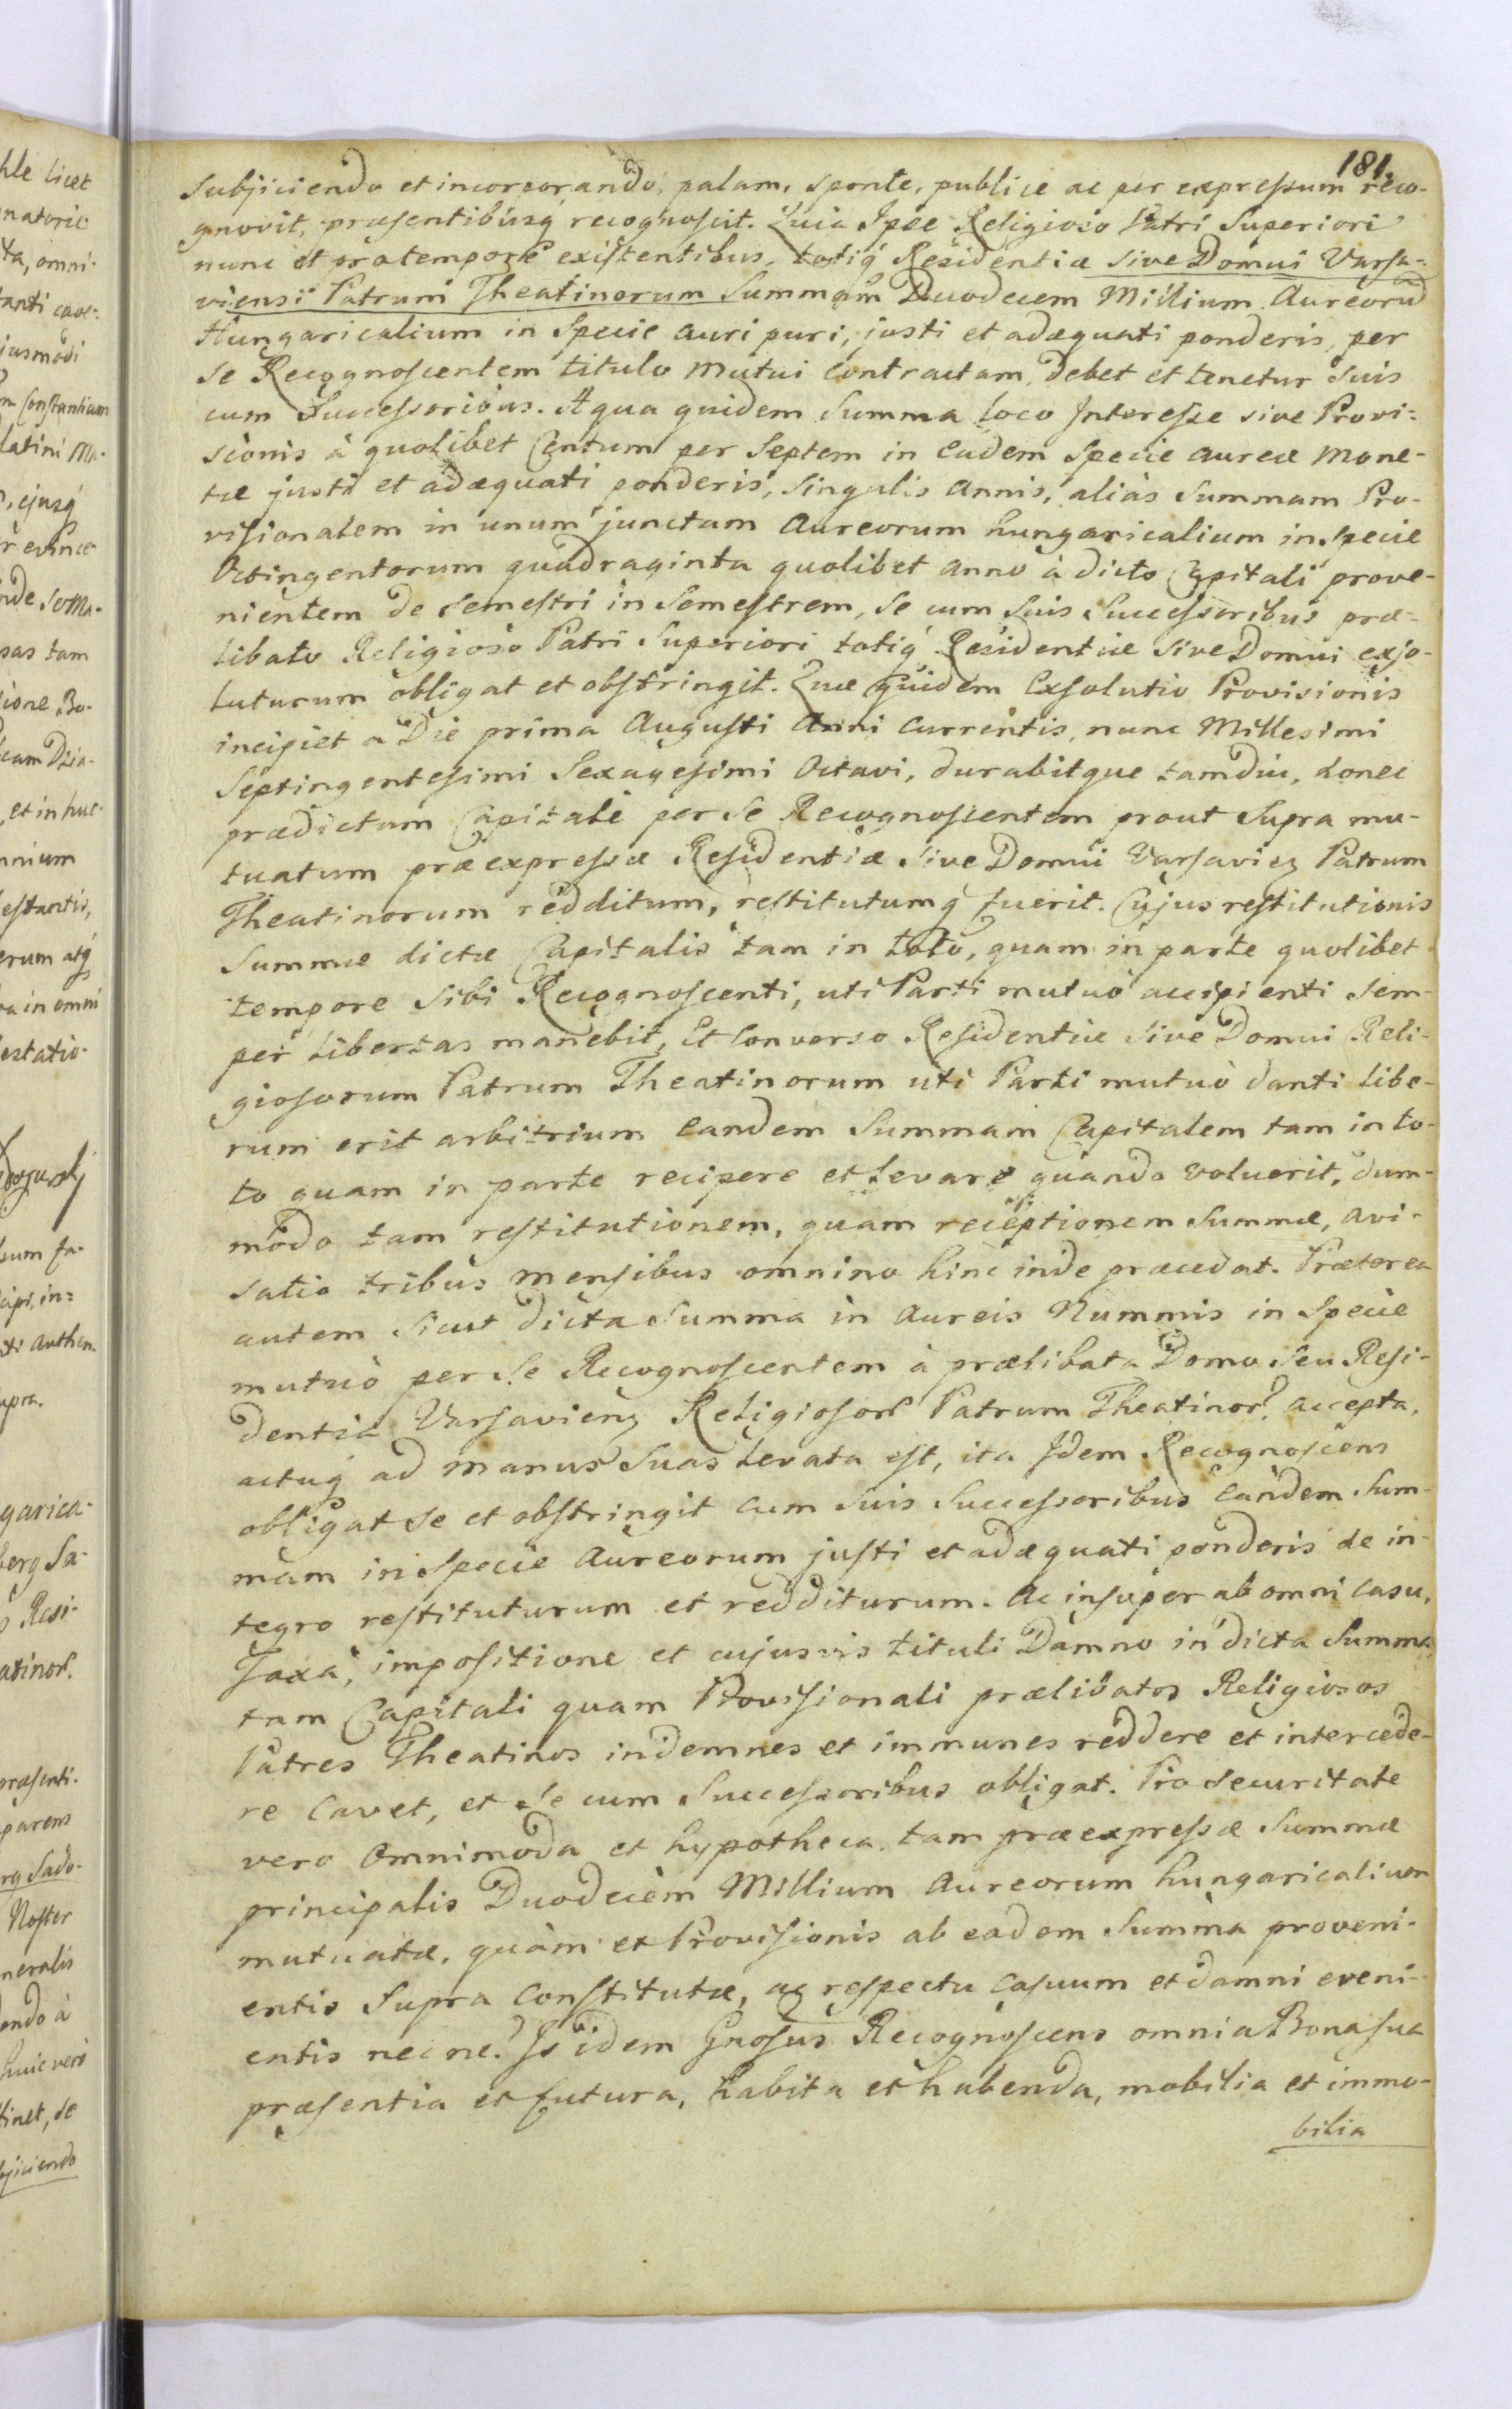 181.
Subjiciendo et incorporando, palam, sponte, publice ac per expressum reco-
gnovit, præsentibusq recognoscit. Quia Ipse Religioso Patri Superiori
nunc et pro tempore existentibus, totiq Residentiæ sive Domui Varsa-
viensi Patrum Theatinorum Summam Duodecem Millium Aureoru
Hungaricalium in Specie auri puri, justi et adæquati ponderis, per
se Recognoscentem titulo Mutui Contractam, debet et tenetur suis
cum Successoribus. A qua quidem Summa loco Interesse sive Provi-
sionis à quolibet Centum per Septem in eadem Specie aureæ Mone-
tæ justi et adæquati ponderis, singulis annis, aliàs Summam Pro-
visionalem in unum junctam Aureorum hungaricalium in Specie
Octingentorum quadraginta quolibet anno à dicto Capitali prove-
nientem de semestri in Semestrem, se cum suis Successoribus præ-
libato Religioso Patri Superiori totiq Residentiæ sive Domui exso-
luturum obligat et obstringit. Quæ quidem Exsolutio Provisionis
incipiet a Die prima Augusti Anni Currentis, nunc Millesimi
Septingentesimi Sexagesimi Octavi, durabitque tamdiu, donec
prædictum Capitale per se Recognoscentem prout Supra mu-
tuatum præexpressæ Residentiæ sive Domui Varsavien Patrum
Theatinorum redditum, restitutumq fuerit. Cujus restitutionis
Summæ dictæ Capitalis tam in toto, quam in parte quolibet
tempore Sibi Recognoscenti, uti Parti mutuò accipienti sem-
per libertas manebit, Et Converso Residentiæ sive Domui Reli-
giosorum Patrum Theatinorum uti Parti mutuò danti libe-
rum erit arbitrium eandem Summam Capitalem tam in to-
to quam in parte recipere et levare quando voluerit, dum-
modo tam restitutionem, quam receptionem Summæ, avi-
satio tribus mensibus omnino hinc inde præcedat. Præterea
autem sicut dicta Summa in aureis Nummis in Specie
mutuò per se Recognoscentem à prælibata Domo seu Resi-
dentia Varsavien Religiosor Patrum Theatinor accepta,
actuq ad manus suas levata est, ita Idem Recognoscens
obligat se et obstringit cum suis Successoribus eandem Sum-
mam in Specie Aureorum justi et adæquati ponderis de in-
tegro restituturum et redditurum. Ac insuper ab omni casu,
Taxa, impositione et cujusvis tituli Damno in dicta Summa
tam Capitali quam Provisionali prælibatos Religiosos
Patres Theatinos indemnes et immunes reddere et intercede-
re Cavet, et se cum Successoribus obligat. Pro securitate
vero Omnimoda et hypotheca tam præexpressæ Summæ
principalis Duodecèm Millium Aureorum hungaricalium
mutuatæ, quàm et Provisionis ab eadem Summa proveni-
entis Supra Constitutæ, ac respectu casuum et damni eveni-
entis nec ne. Is idem Gnosus Recognoscens omnia Bona sua
præsentia et futura, habita et habenda, mobilia et immo-
bilia